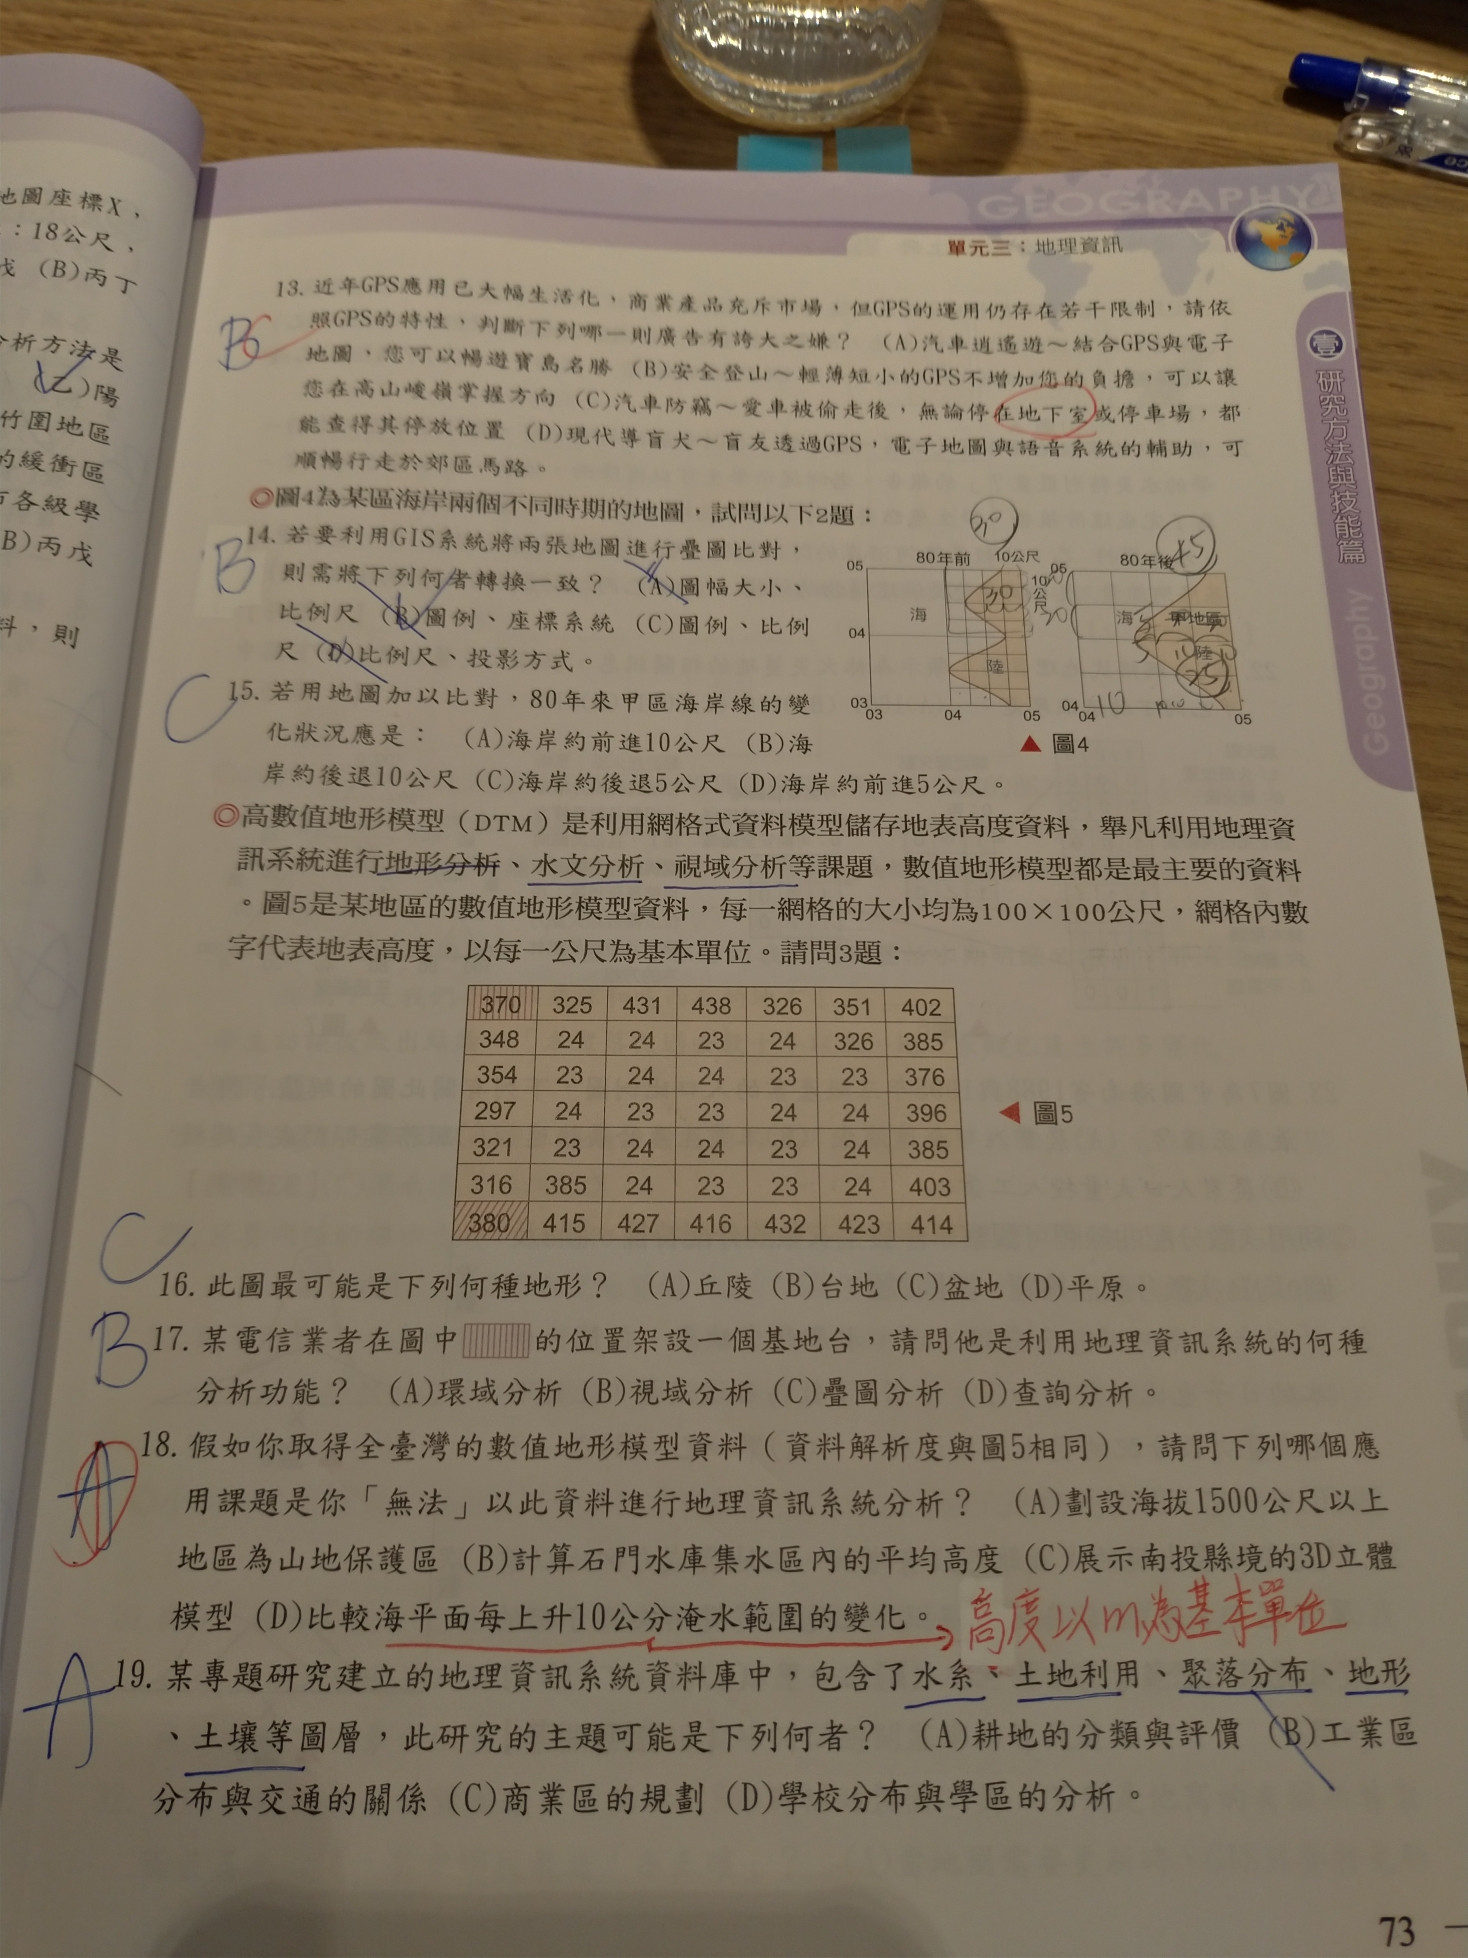 地圖座標X，
：18公尺，
戊 (B)丙丁
分析方法是
(乙)陽
竹圍地區
的緩衝區
市各級學
B)丙戊
料，則
GEOGRAPHY
單元三：地理資訊
壹 研究方法與技能篇
Geography
13. 近年GPS應用已大幅生活化，商業產品充斥市場，但GPS的運用仍存在若干限制，請依
照GPS的特性，判斷下列哪一則廣告有誇大之嫌？ (A)汽車逍遙遊～結合GPS與電子
地圖，您可以暢遊寶島名勝 (B)安全登山～輕薄短小的GPS不增加您的負擔，可以讓
您在高山峻嶺掌握方向 (C)汽車防竊～愛車被偷走後，無論停在地下室或停車場，都
能查得其停放位置 (D)現代導盲犬～盲友透過GPS，電子地圖與語音系統的輔助，可
順暢行走於郊區馬路。
B C
◎圖4為某區海岸兩個不同時期的地圖，試問以下2題：
B
14. 若要利用GIS系統將兩張地圖進行疊圖比對，
則需將下列何者轉換一致？ (A)圖幅大小、
比例尺 (B)圖例、座標系統 (C)圖例、比例
尺 (D)比例尺、投影方式。
C
15. 若用地圖加以比對，80年來甲區海岸線的變
化狀況應是： (A)海岸約前進10公尺 (B)海
岸約後退10公尺 (C)海岸約後退5公尺 (D)海岸約前進5公尺。
80年前 10公尺
10公尺
05
海
04
陸
03
03 04 05
80年後
05
海 甲地區
陸
04
04 05
10
▲ 圖4
◎高數值地形模型（DTM）是利用網格式資料模型儲存地表高度資料，舉凡利用地理資
訊系統進行地形分析、水文分析、視域分析等課題，數值地形模型都是最主要的資料
。圖5是某地區的數值地形模型資料，每一網格的大小均為100×100公尺，網格內數
字代表地表高度，以每一公尺為基本單位。請問3題：
370 325 431 438 326 351 402
348 24 24 23 24 326 385
354 23 24 24 23 23 376
297 24 23 23 24 24 396
321 23 24 24 23 24 385
316 385 24 23 23 24 403
380 415 427 416 432 423 414
◀ 圖5
C
16. 此圖最可能是下列何種地形？ (A)丘陵 (B)台地 (C)盆地 (D)平原。
B
17. 某電信業者在圖中的位置架設一個基地台，請問他是利用地理資訊系統的何種
分析功能？ (A)環域分析 (B)視域分析 (C)疊圖分析 (D)查詢分析。
A D
18. 假如你取得全臺灣的數值地形模型資料（資料解析度與圖5相同），請問下列哪個應
用課題是你「無法」以此資料進行地理資訊系統分析？ (A)劃設海拔1500公尺以上
地區為山地保護區 (B)計算石門水庫集水區內的平均高度 (C)展示南投縣境的3D立體
模型 (D)比較海平面每上升10公分淹水範圍的變化。
高度以m為基本單位
A
19. 某專題研究建立的地理資訊系統資料庫中，包含了水系、土地利用、聚落分布、地形
、土壤等圖層，此研究的主題可能是下列何者？ (A)耕地的分類與評價 (B)工業區
分布與交通的關係 (C)商業區的規劃 (D)學校分布與學區的分析。
73